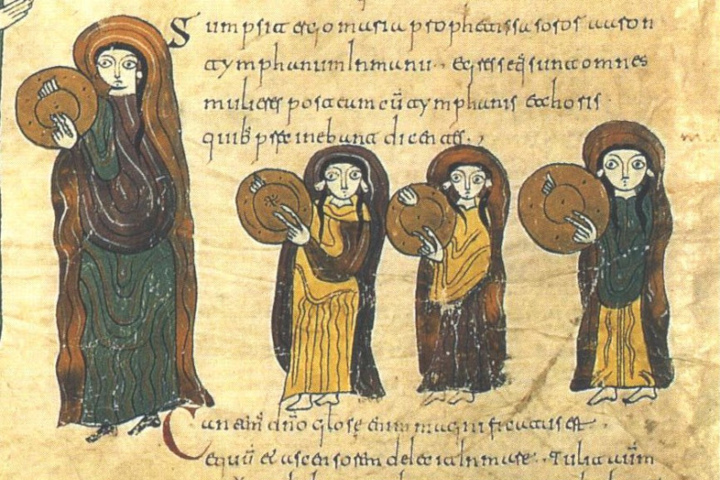 Sumpsit ergo maria prophetissa soror aaron
tymphanum In manu · Egresseq; sunt omnes
mulieres post eam cū tymphanis et choris ·
quib; precinebant dicentes ·,
Cantem̄ dn̄o gl̄ose enim magnificatus est ·
equū et ascensorem deiecit In mare · Tulit